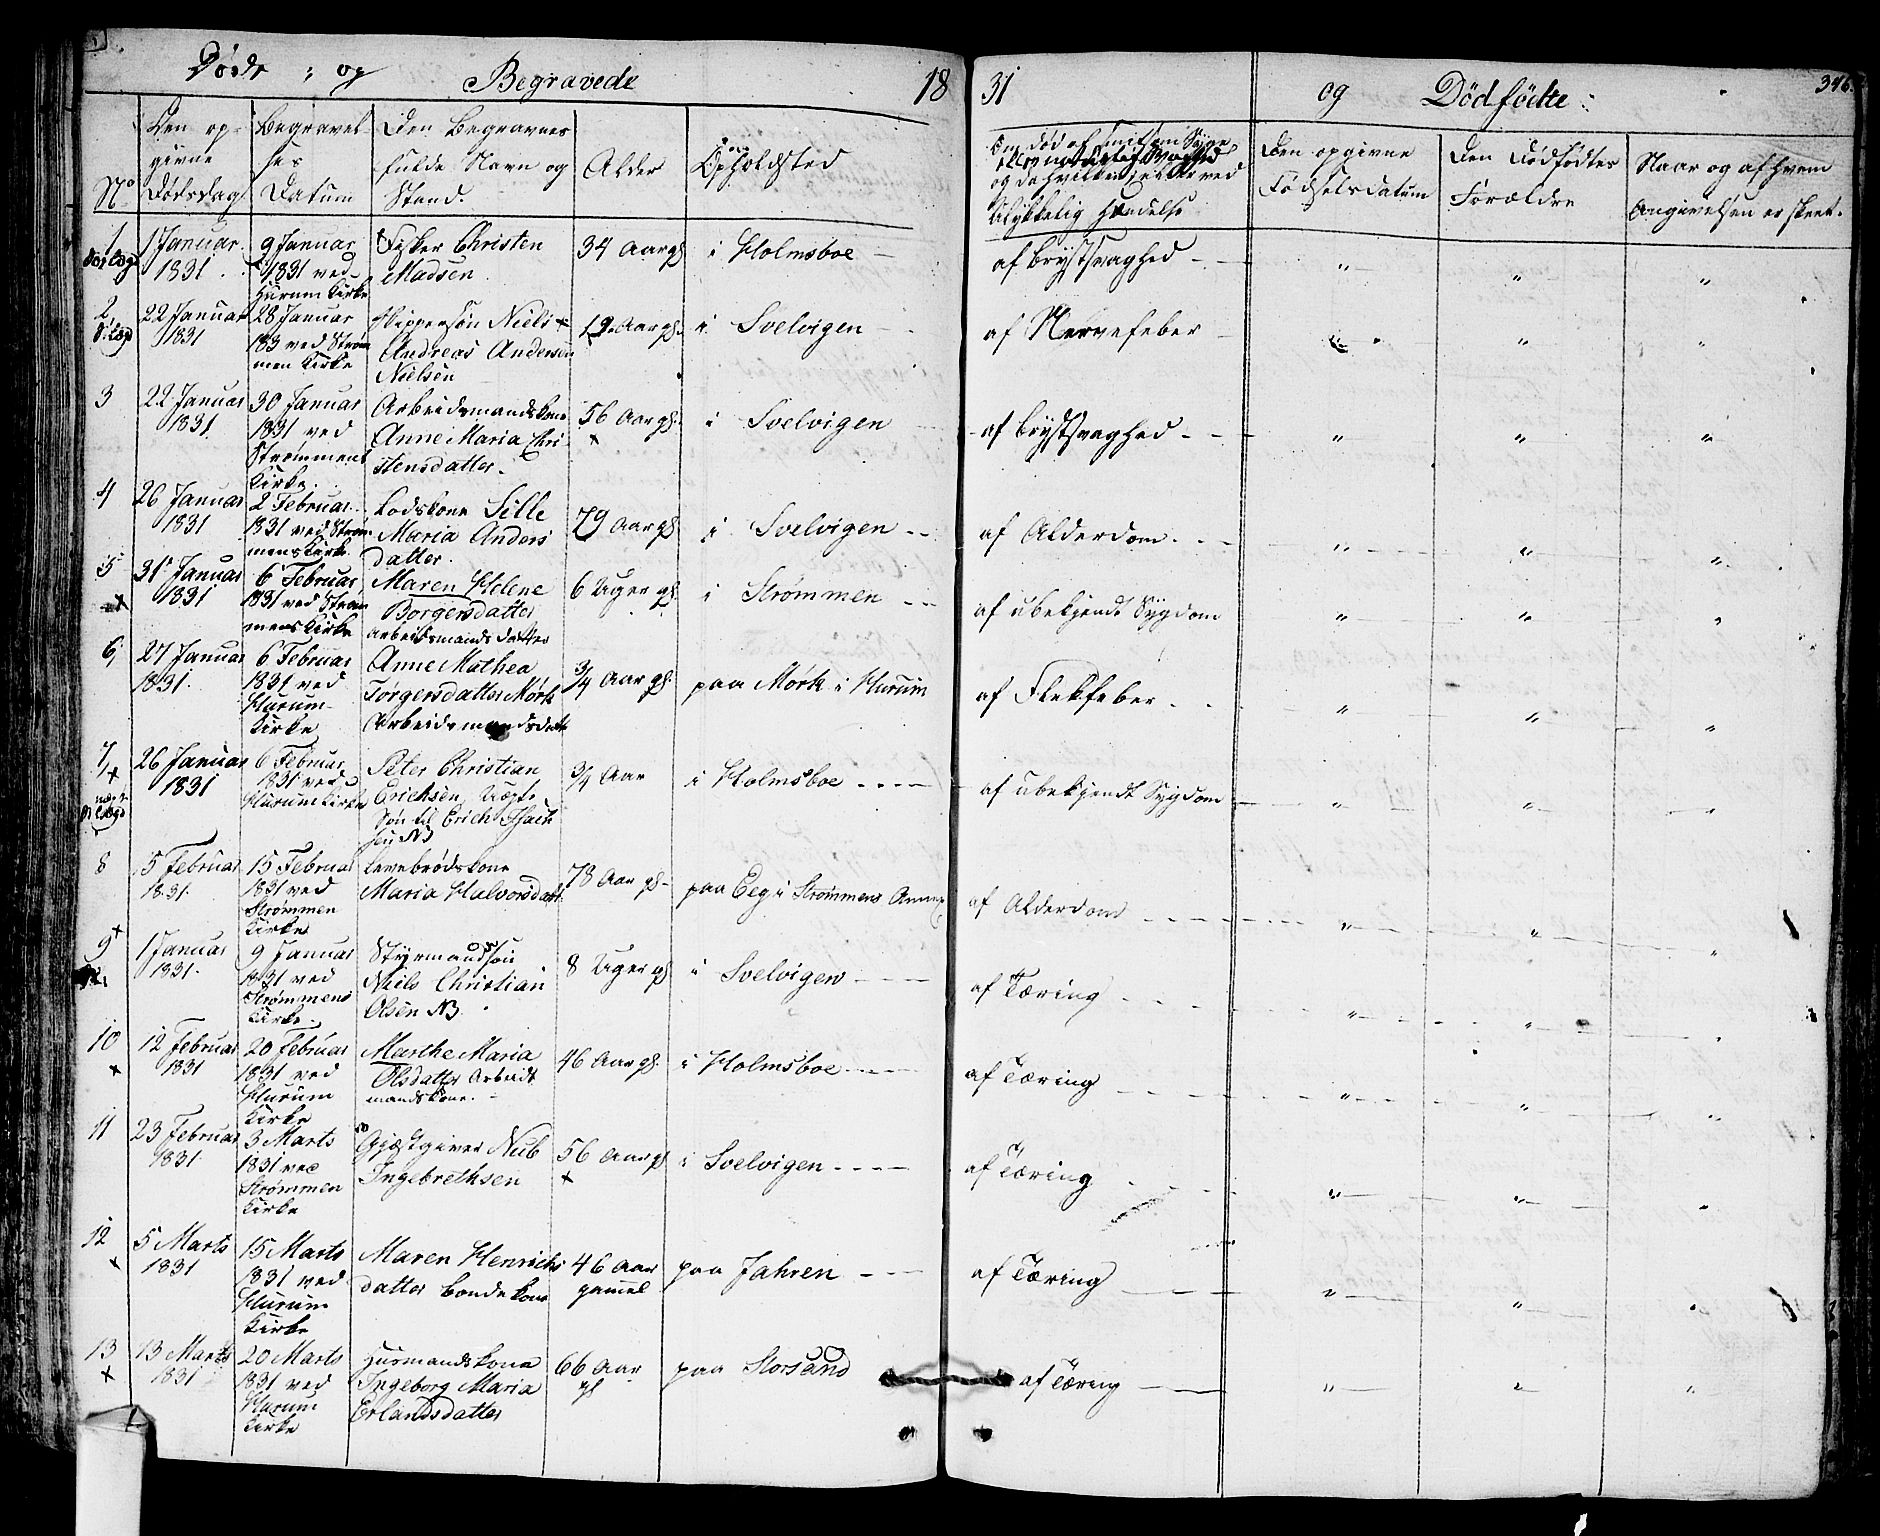 Døde : og Begravede 18
31 og Dödfödte : 346.
No
Den op-
givne
Dödsdag
Begravel-
ses
Datum
Den Begravnes
fulde Navn og
Stand.
Alder
Opholdsted
og da hvilken, eller ved
Ulykkelig Hændelse
Den opgivne
Födselsdatum
Den Dödfödtes
Forældre
Naar og af hvem
Angivelsen er skeet.
1
1 Januar
1831.
9 Januar
1831 ved
Hurum Kirke
Fisker Christen
Madsen
34 Aar gl.
i Holmsboe
af Brystsvaghed
2
22 Januar
1831
28 Januar
183 ved Ström
men Kirke
Skippersön Niels
Andreas Andersen
Nielsen
19 Aar gl.
i Svelvigen
af Nervefeber
3
22 Januar
1831.
30 Januar
1831 ved
Strømmens
Kirke.
Arbeidsmandskone
Anne Maria Chri
stensdatter.
56 Aar gl.
i Svelvigen
af Brystsvaghed
4
26 Januar
1831
2 Februar
1831 ved Ström
mens Kirke
Lodskone Sille
Maria Anders
datter.
79 Aar gl.
i Svelvigen
af Alderdom
5
31 Januar
1831
6 Februar
1831 ved Ström
mens Kirke
Maren Helene
Borgersdatter
Arbeidsmands datter
6 Uger gl.
i Strømmen
af ubekjendt Sÿgdom
6
27 Januar
1831.
6 Februar
1831 ved
Hurum
Kirke
Anne Mathea
Torgersdatter Mörk
Arbeidsmandsdatt
3/4 Aar gl.
paa Mörk i Hurum
af Flekfeber
7
26 Januar
1831
6 Februar
1831 ved
Hurum Kirke
Peter Christian
Erichsen Uægte
Sön til Erich
3/4 Aar
i Holmsboe
af ubekjendt Sygdom
8
5 Februar
1831.
15 Februar
1831 ved
Strømmen
Kirke
Levebrødskone
Maria Halvorsdatt.
78 Aar gl.
paa Eeg i Strømmens Annex
af Alderdom
9
1 Januar
1831.
9 Januar
1831 ved
Strømmens
Kirke.
Styrmandssön
Niels Christian
Olsen NB.
8 Uger gl.
i Svelvigen
af Tæring
10
12 Februar
1831
20 Februar
1831 ved
Hurum
Kirke
Marthe Maria
Olsdatter Arbeidt
mandskone.
46 Aar gl.
i Holmsboe
af Tæring
11
23 Februar
1831.
3 Marts
1831 ved
Strømmen
Kirke
Gjæstgiver Nub
Ingebrethsen
56 Aar gl
i Svelvigen
af Tæring
12
5 Marts
1831
15 Marts
1831 ved
Hurum
Kirke
Maren Henrichs
datter Bondekone
46 Aar
gammel
paa Jahren
af Tæring
13
13 Marts
1831
20 Marts
1831 ved
Hurum
Kirke
Husmandskone
Ingeborg Maria
Erlandsdatter
66 Aar
gl
paa Storsand
af Tæring